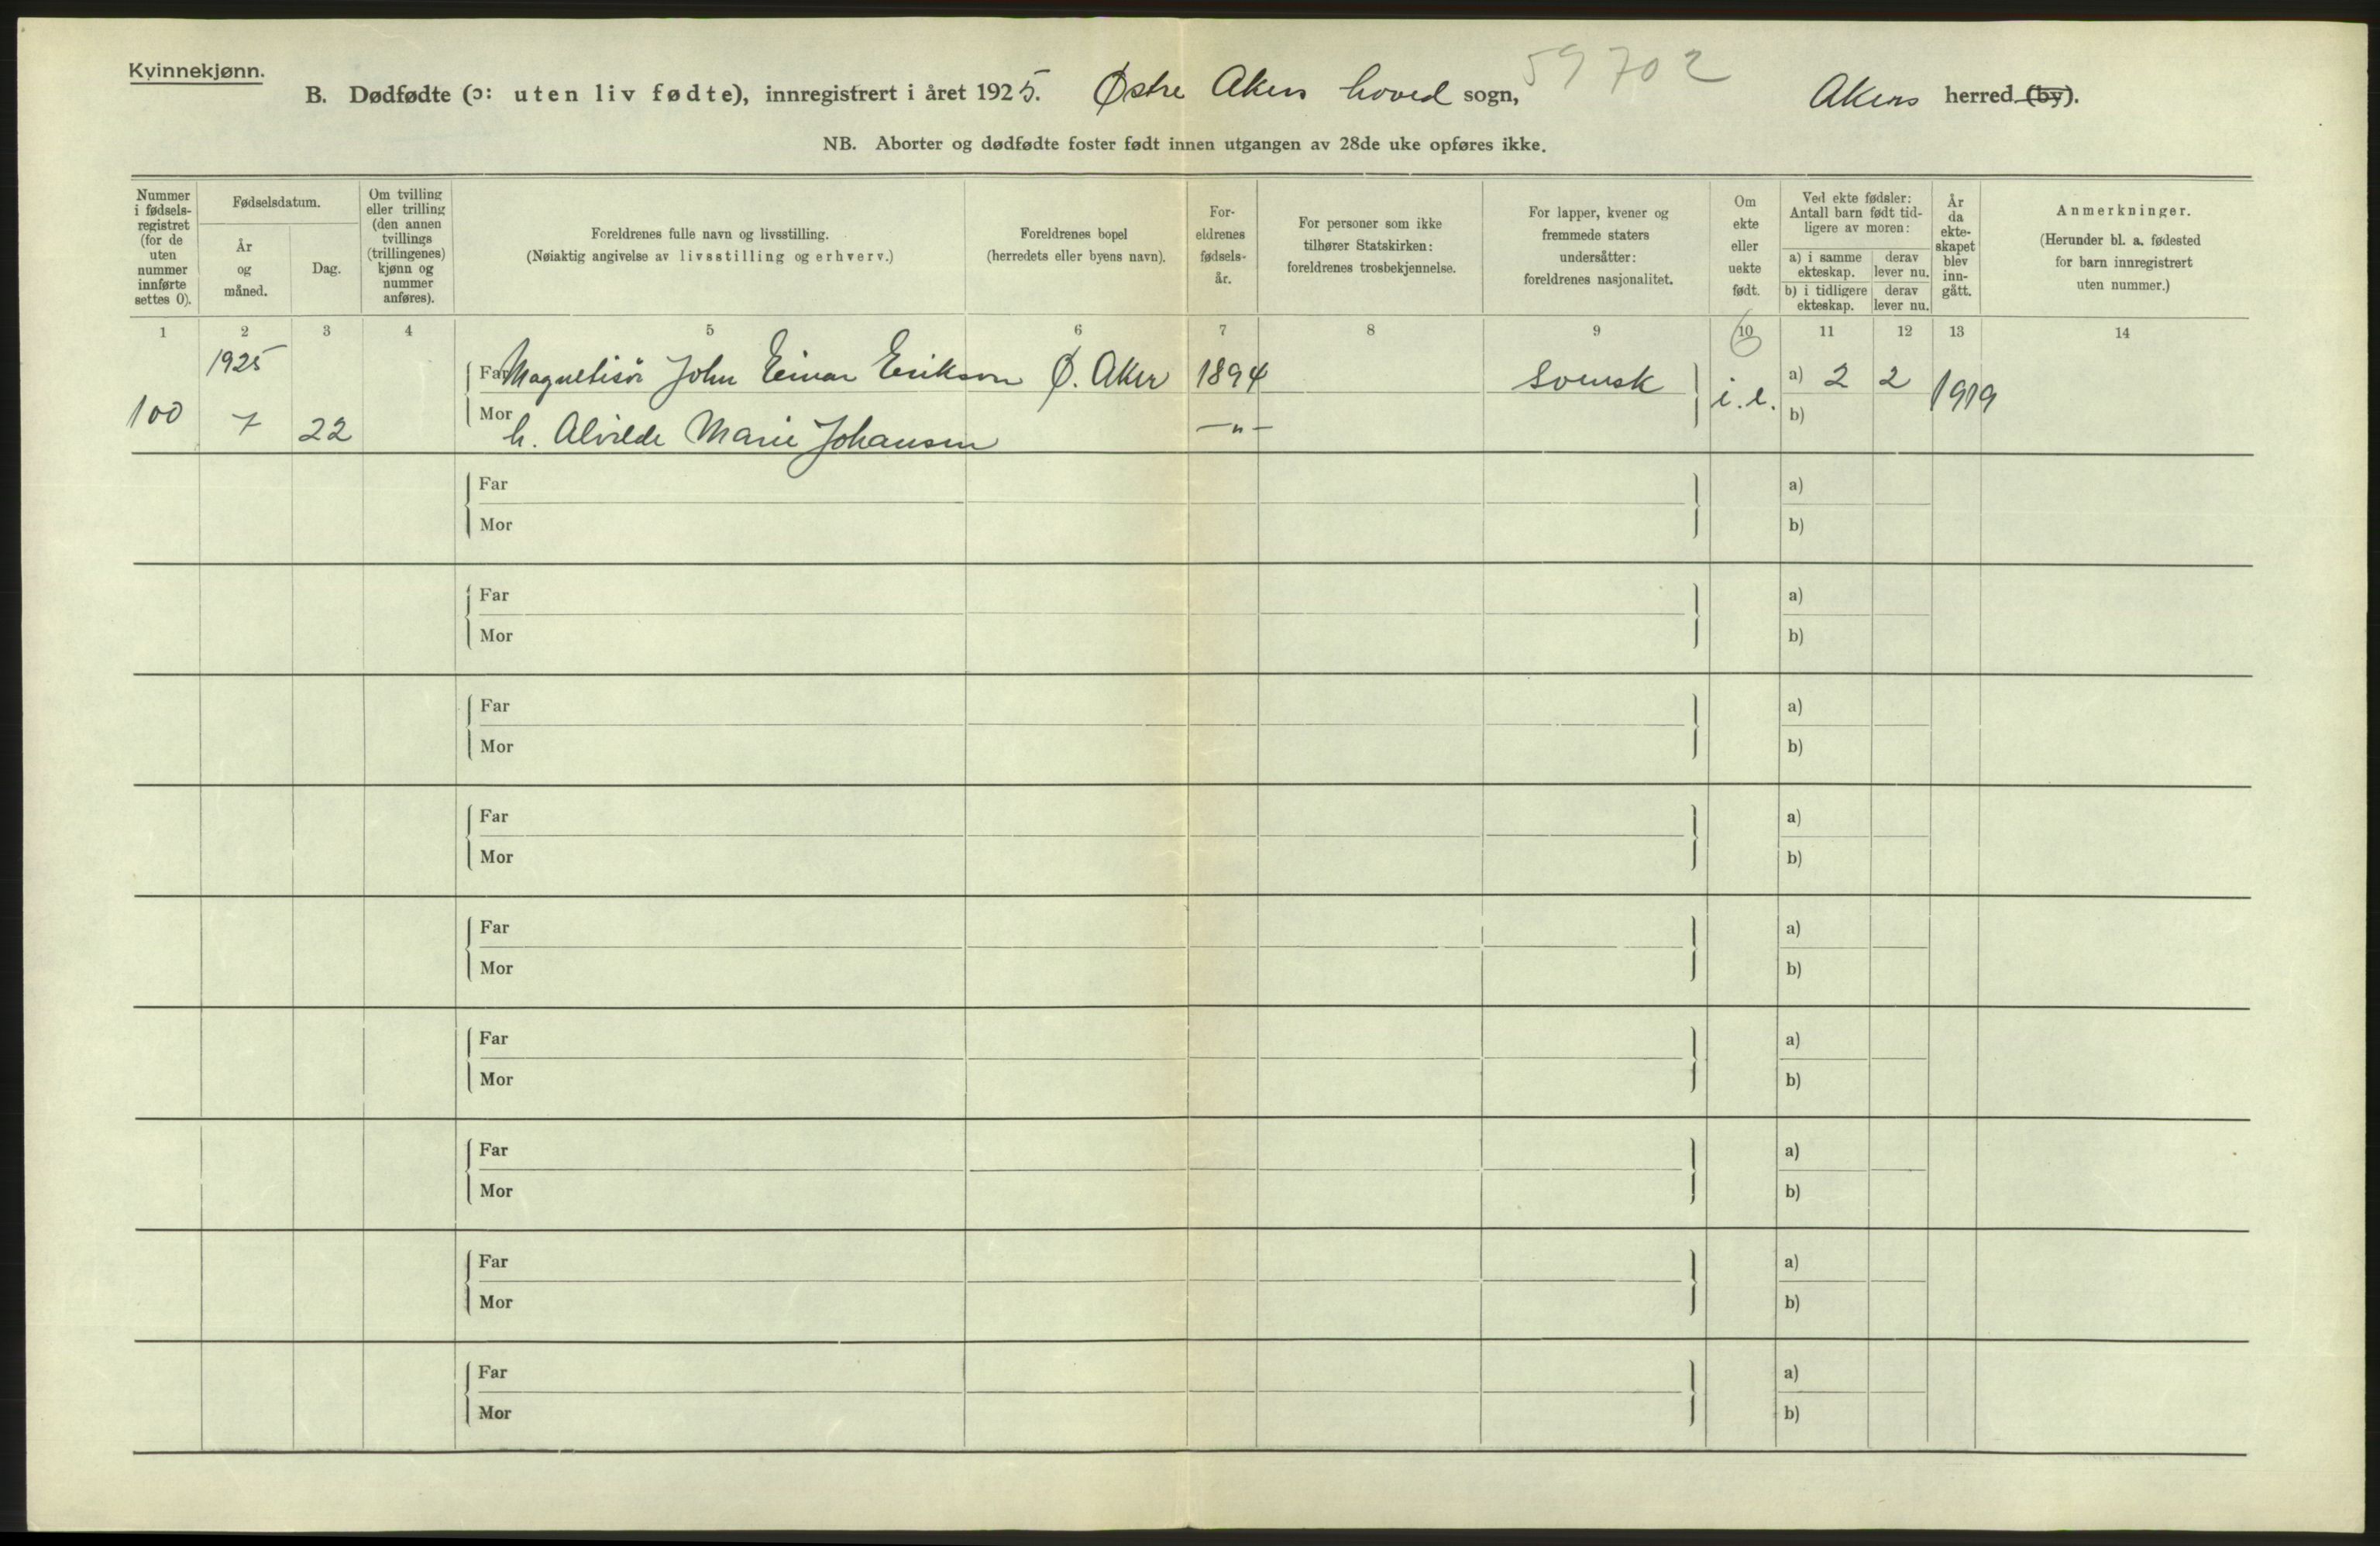 Kvinnekjønn.
59702
B. Dødfødte (ɔ: uten liv fødte), innregistrert i året 1925. Østre Akers hoved sogn, Akers herred (by).
NB. Aborter og dødfødte foster født innen utgangen av 28de uke opføres ikke.
Nummer i fødsels-registret (for de uten nummer innførte settes 0).
Fødselsdatum.
År og måned.
Dag.
Om tvilling eller trilling (den annen tvillings (trillingenes) kjønn og nummer anføres).
Foreldrenes fulle navn og livsstilling.
(Nøiaktig angivelse av livsstilling og erhverv.)
Foreldrenes bopel
(herredets eller byens navn).
For-eldrenes fødsels-år.
For personer som ikke tilhører Statskirken: foreldrenes trosbekjennelse.
For lapper, kvener og fremmede staters undersåtter: foreldrenes nasjonalitet.
Om ekte eller uekte født.
Ved ekte fødsler: Antall barn født tid-ligere av moren:
a) i samme ekteskap.
derav lever nu.
b) i tidligere ekteskap.
derav lever nu.
År da ekte-skapet blev inn-gått.
Anmerkninger.
(Herunder bl. a. fødested for barn innregistrert uten nummer.)
1 2 3 4 5 6 7 8 9 10 11 12 13 14
1925
Far Magnetisør John Einar Erikson Ø. Aker 1894 Svensk a) 2 2
100 7 22 i.e. 1919
Mor h. Alvilde Marie Johansen —"— b)
Far a)
Mor b)
Far a)
Mor b)
Far a)
Mor b)
Far a)
Mor b)
Far a)
Mor b)
Far a)
Mor b)
Far a)
Mor b)
Far a)
Mor b)
Far a)
Mor b)